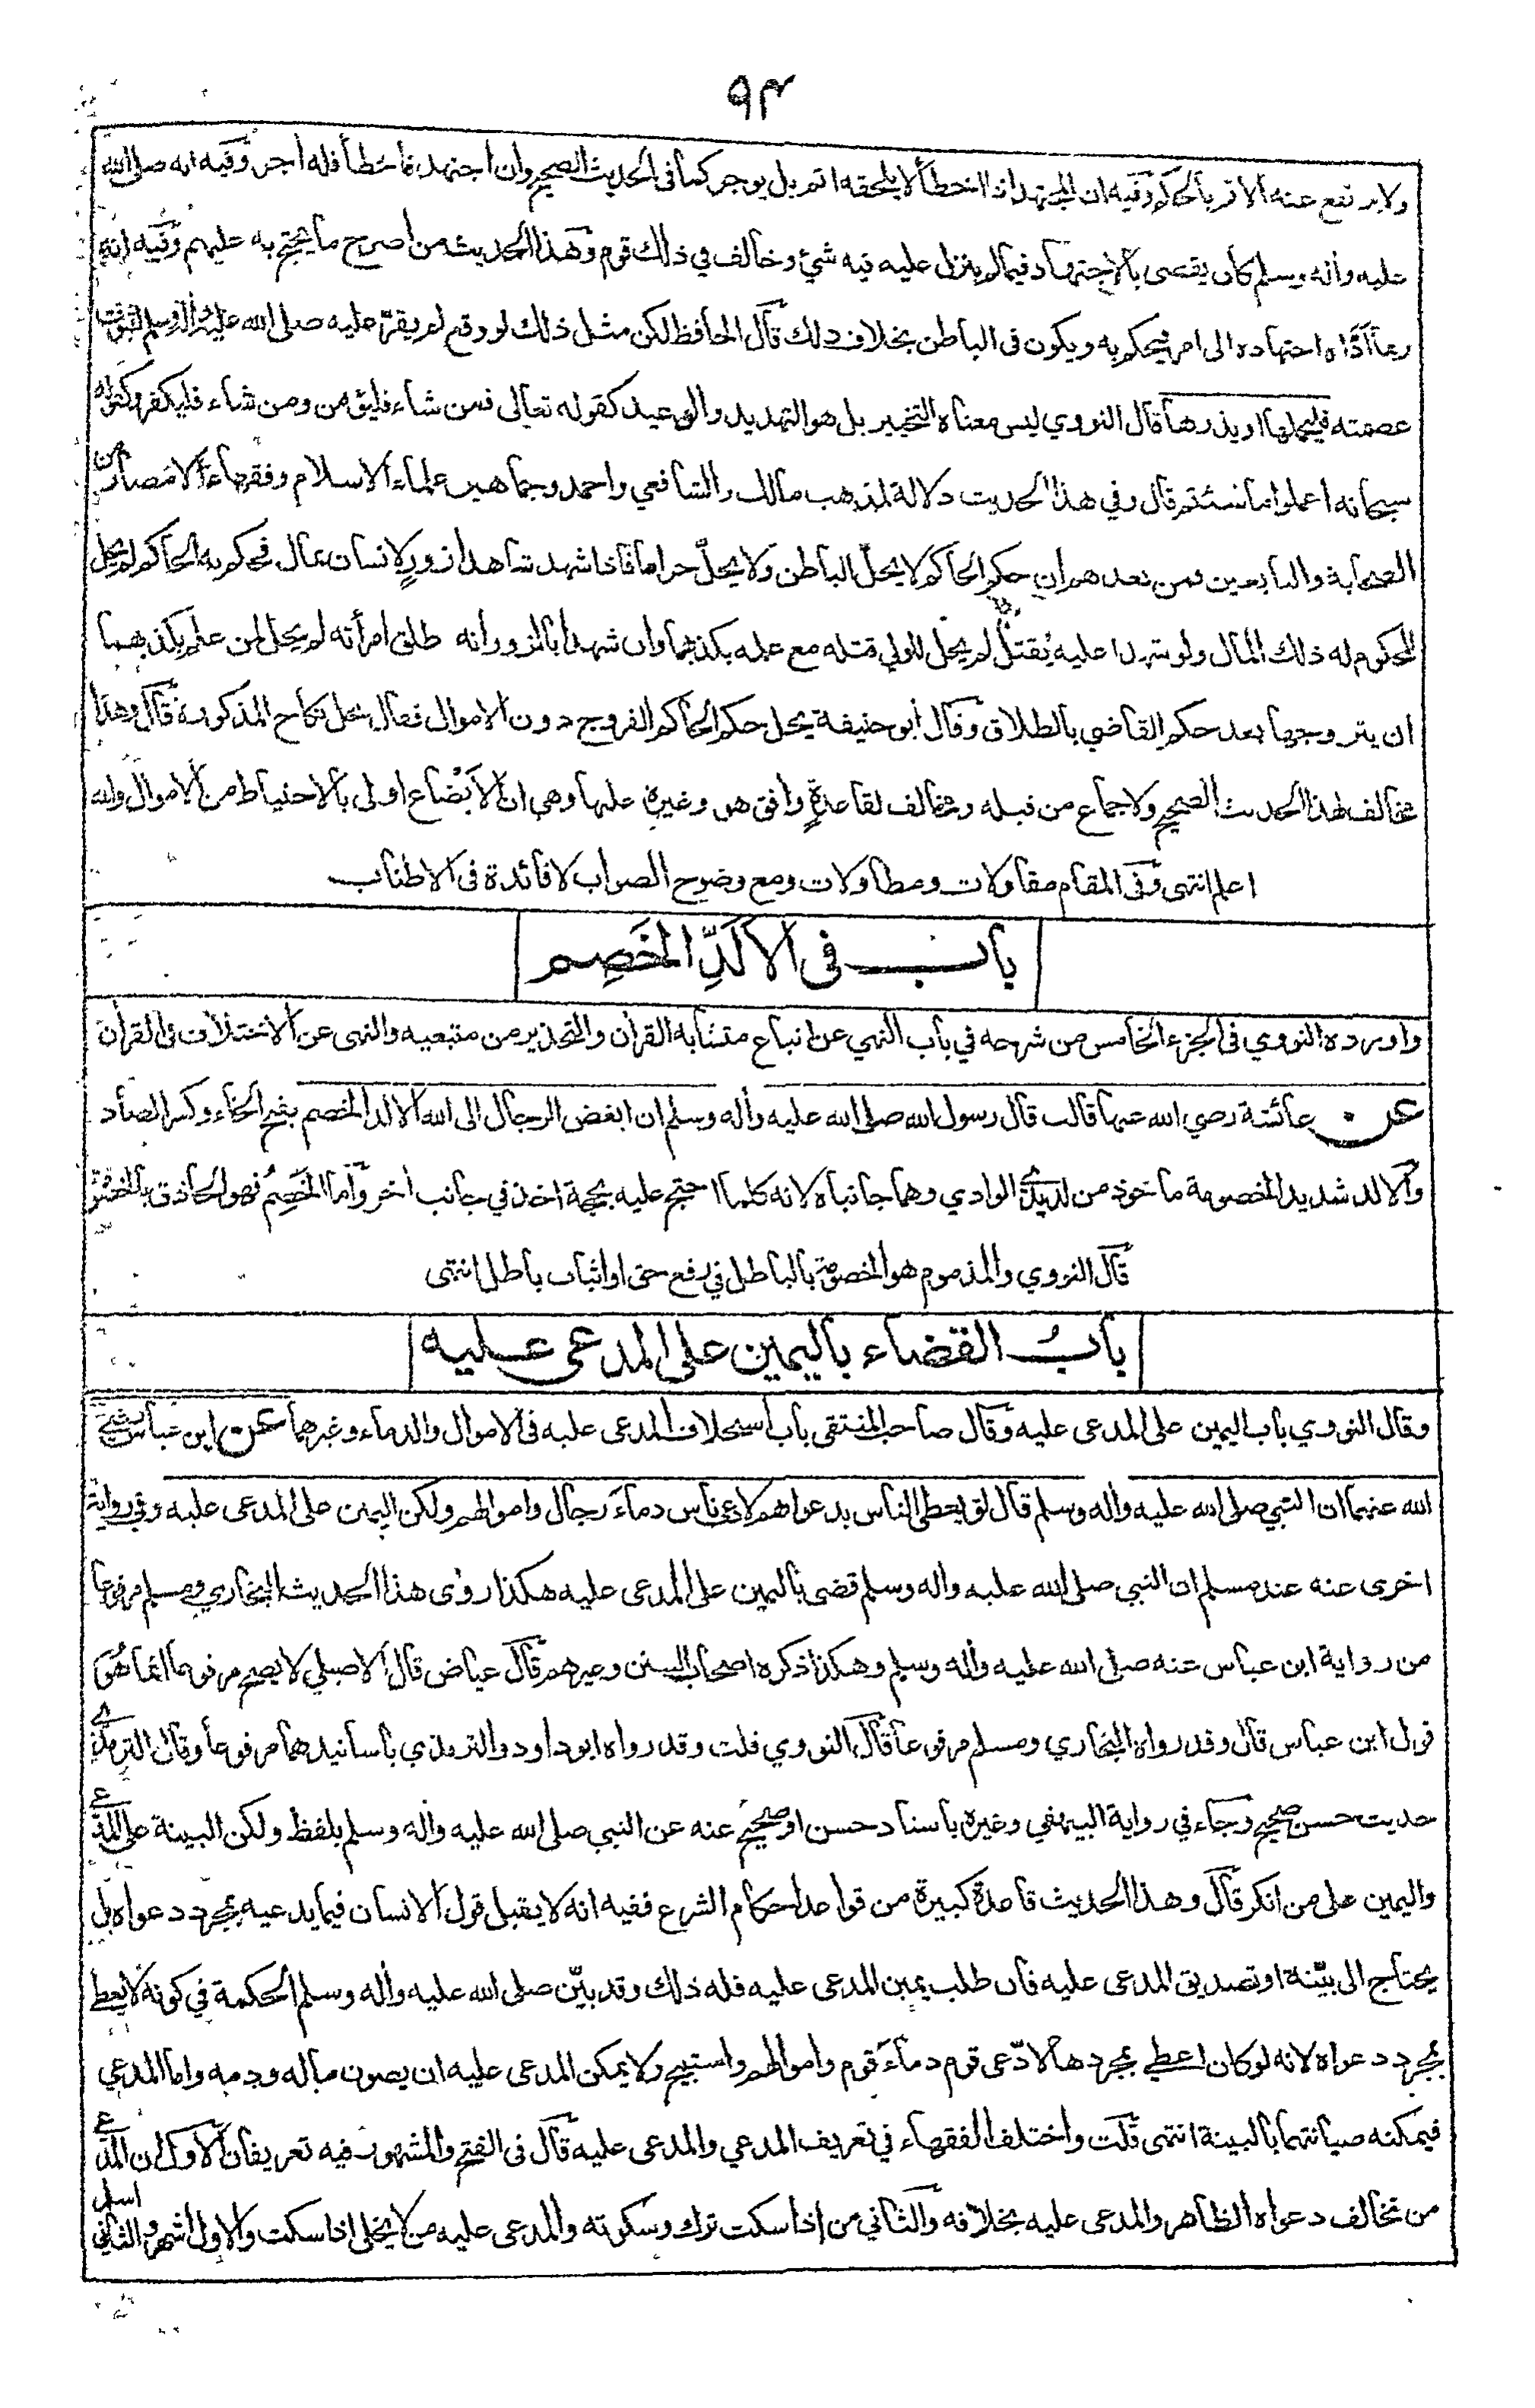 ٩٣
ولا يرتفع عنه الاثر بالحاكم وفيه ان المجتهد اذا اخطأ لا يلحقه اثم بل يوجر كما في الحديث الصحيح وان اجتهد فاخطأ فله اجر وفيه انه صلى الله
عليه وأله وسلم كان يقضى بالاجتهاد فيما لم ينزل عليه فيه شئ وخالف في ذلك قوم وهذا الحديث من اصرح ما يحتج به عليهم وفيه انه
ربما أدّاه اجتهاده الى امر فيحكم به ويكون فى الباطن بخلاف ذلك قال الحافظ لكن مثل ذلك لو وقع لم يقرّ عليه صلى الله عليه وأله وسلم لثبوت
عصمته فليحملها او يذرها قال النووي ليس معناه التخيير بل هو التهديد والوعيد كقوله تعالى فمن شاء فليؤمن ومن شاء فليكفر وكقوله
سبحانه اعملوا ما شئتم قال وفي هذا الحديث دلالة لمذهب مالك والشافعي واحمد وجماهير علماء الاسلام وفقهاء الامصار من
الصحابة والتابعين ومن بعدهم ان حكم الحاكم لا يحلّ الباطن ولا يحلّ حراما فاذا شهد شاهدا زورٍ لانسان بمال فحكم به الحاكم لم يحل
للمحكوم له ذلك المال ولو شهدا عليه بقتل لم يحل للولي قتله مع علمه بكذبهما وان شهدا بالزور انه طلق امرأته لم يحل لمن علم بكذبهما
ان يتزوجها بعد حكم القاضي بالطلاق وقال أبو حنيفة يحل حكم الحاكم الفروج دون الاموال فقال يحل نكاح المذكورة قال وهذا
مخالف لهذا الحديث الصحيح ولاجماع من قبله ومخالف لقاعدةٍ وافق هو وغيره عليها وهي ان الأبْضاع اولى بالاحتياط من الاموال والله
اعلم انتهى وفى المقام مقاولات ومطاولات ومع وضوح الصواب لا فائدة فى الاطناب
باب فى الألَدِّ الخَصِم
واورده النووي فى الجزء الخامس من شرحه في باب النهي عن اتباع متشابه القرأن والتحذير من متبعيه والنهى عن الاختلاف فى القرأن
عن عائشة رضي الله عنها قالت قال رسول الله صلى الله عليه وأله وسلم ان ابغض الرجال الى الله الالد الخصم بفتح الخاء وكسر الصاد
والالد شديد الخصومة ماخوذ من لديدي الوادي وهما جانباه لانه كلما احتج عليه بحجة اخذ في جانب اخر وأما الخَصِمُ فهو الحاذق بالخصومة
قال النووي والمذموم هو الخصومة بالباطل في رفع حق او اثبات باطل انتهى
بابُ القضاء باليمين على المدعى عليه
وقال النووي باب اليمين على المدعى عليه وقال صاحب المنتقى باب استحلاف المدعى عليه فى الاموال والدماء وغيرهما عن ابن عباس رضي
الله عنهما ان النبي صلى الله عليه وأله وسلم قال لو يعطى الناس بدعواهم لادعى ناس دماء رجال واموالهم ولكن اليمين على المدعى عليه وفي رواية
اخرى عنه عند مسلم ان النبي صلى الله عليه واله وسلم قضى باليمين على المدعى عليه هكذا روى هذا الحديث البخاري ومسلم مرفوعا
من رواية ابن عباس عنه صلى الله عليه وأله وسلم وهكذا ذكره اصحاب السنن وغيرهم قال عياض قال الاصيلي لا يصح مرفوعا انما هُوَ
قول ابن عباس قال وقد رواه البخاري ومسلم مرفوعا قال النووي قلت وقد رواه ابو داود والترمذي بأسانيدهما مرفوعاً وقال الترمذي
حديث حسن صحيح وجاء في رواية البيهقي وغيره باسناد حسن او صحيح عنه عن النبي صلى الله عليه وأله وسلم بلفظ ولكن البينة على المدعي
واليمين على من انكر قال وهذا الحديث قاعدة كبيرة من قواعد احكام الشرع ففيه انه لا يقبل قول الانسان فيما يدعيه بمجرد دعواه بل
يحتاج الى بيّنة او تصديق المدعى عليه فان طلب يمين المدعى عليه فله ذلك وقد بيّن صلى الله عليه وأله وسلم الحكمة في كونه لا يعطى
بمجرد دعواه لانه لو كان اعطي بمجردها لادّعى قوم دماء قوم واموالهم واستبيح ولا يمكن المدعى عليه ان يصون ماله ودمه واما المدعي
فيمكنه صيانتهما بالبينة انتهى قلت واختلف الفقهاء في تعريف المدعي والمدعى عليه قال فى الفتح والمشهور فيه تعريفان الاول ان المدعي
من تخالف دعواه الظاهر والمدعى عليه بخلافه والثاني من إذا سكت ترك وسكوته والمدعى عليه من لا يخلى اذا سكت والاول اشهر والثاني اسلم